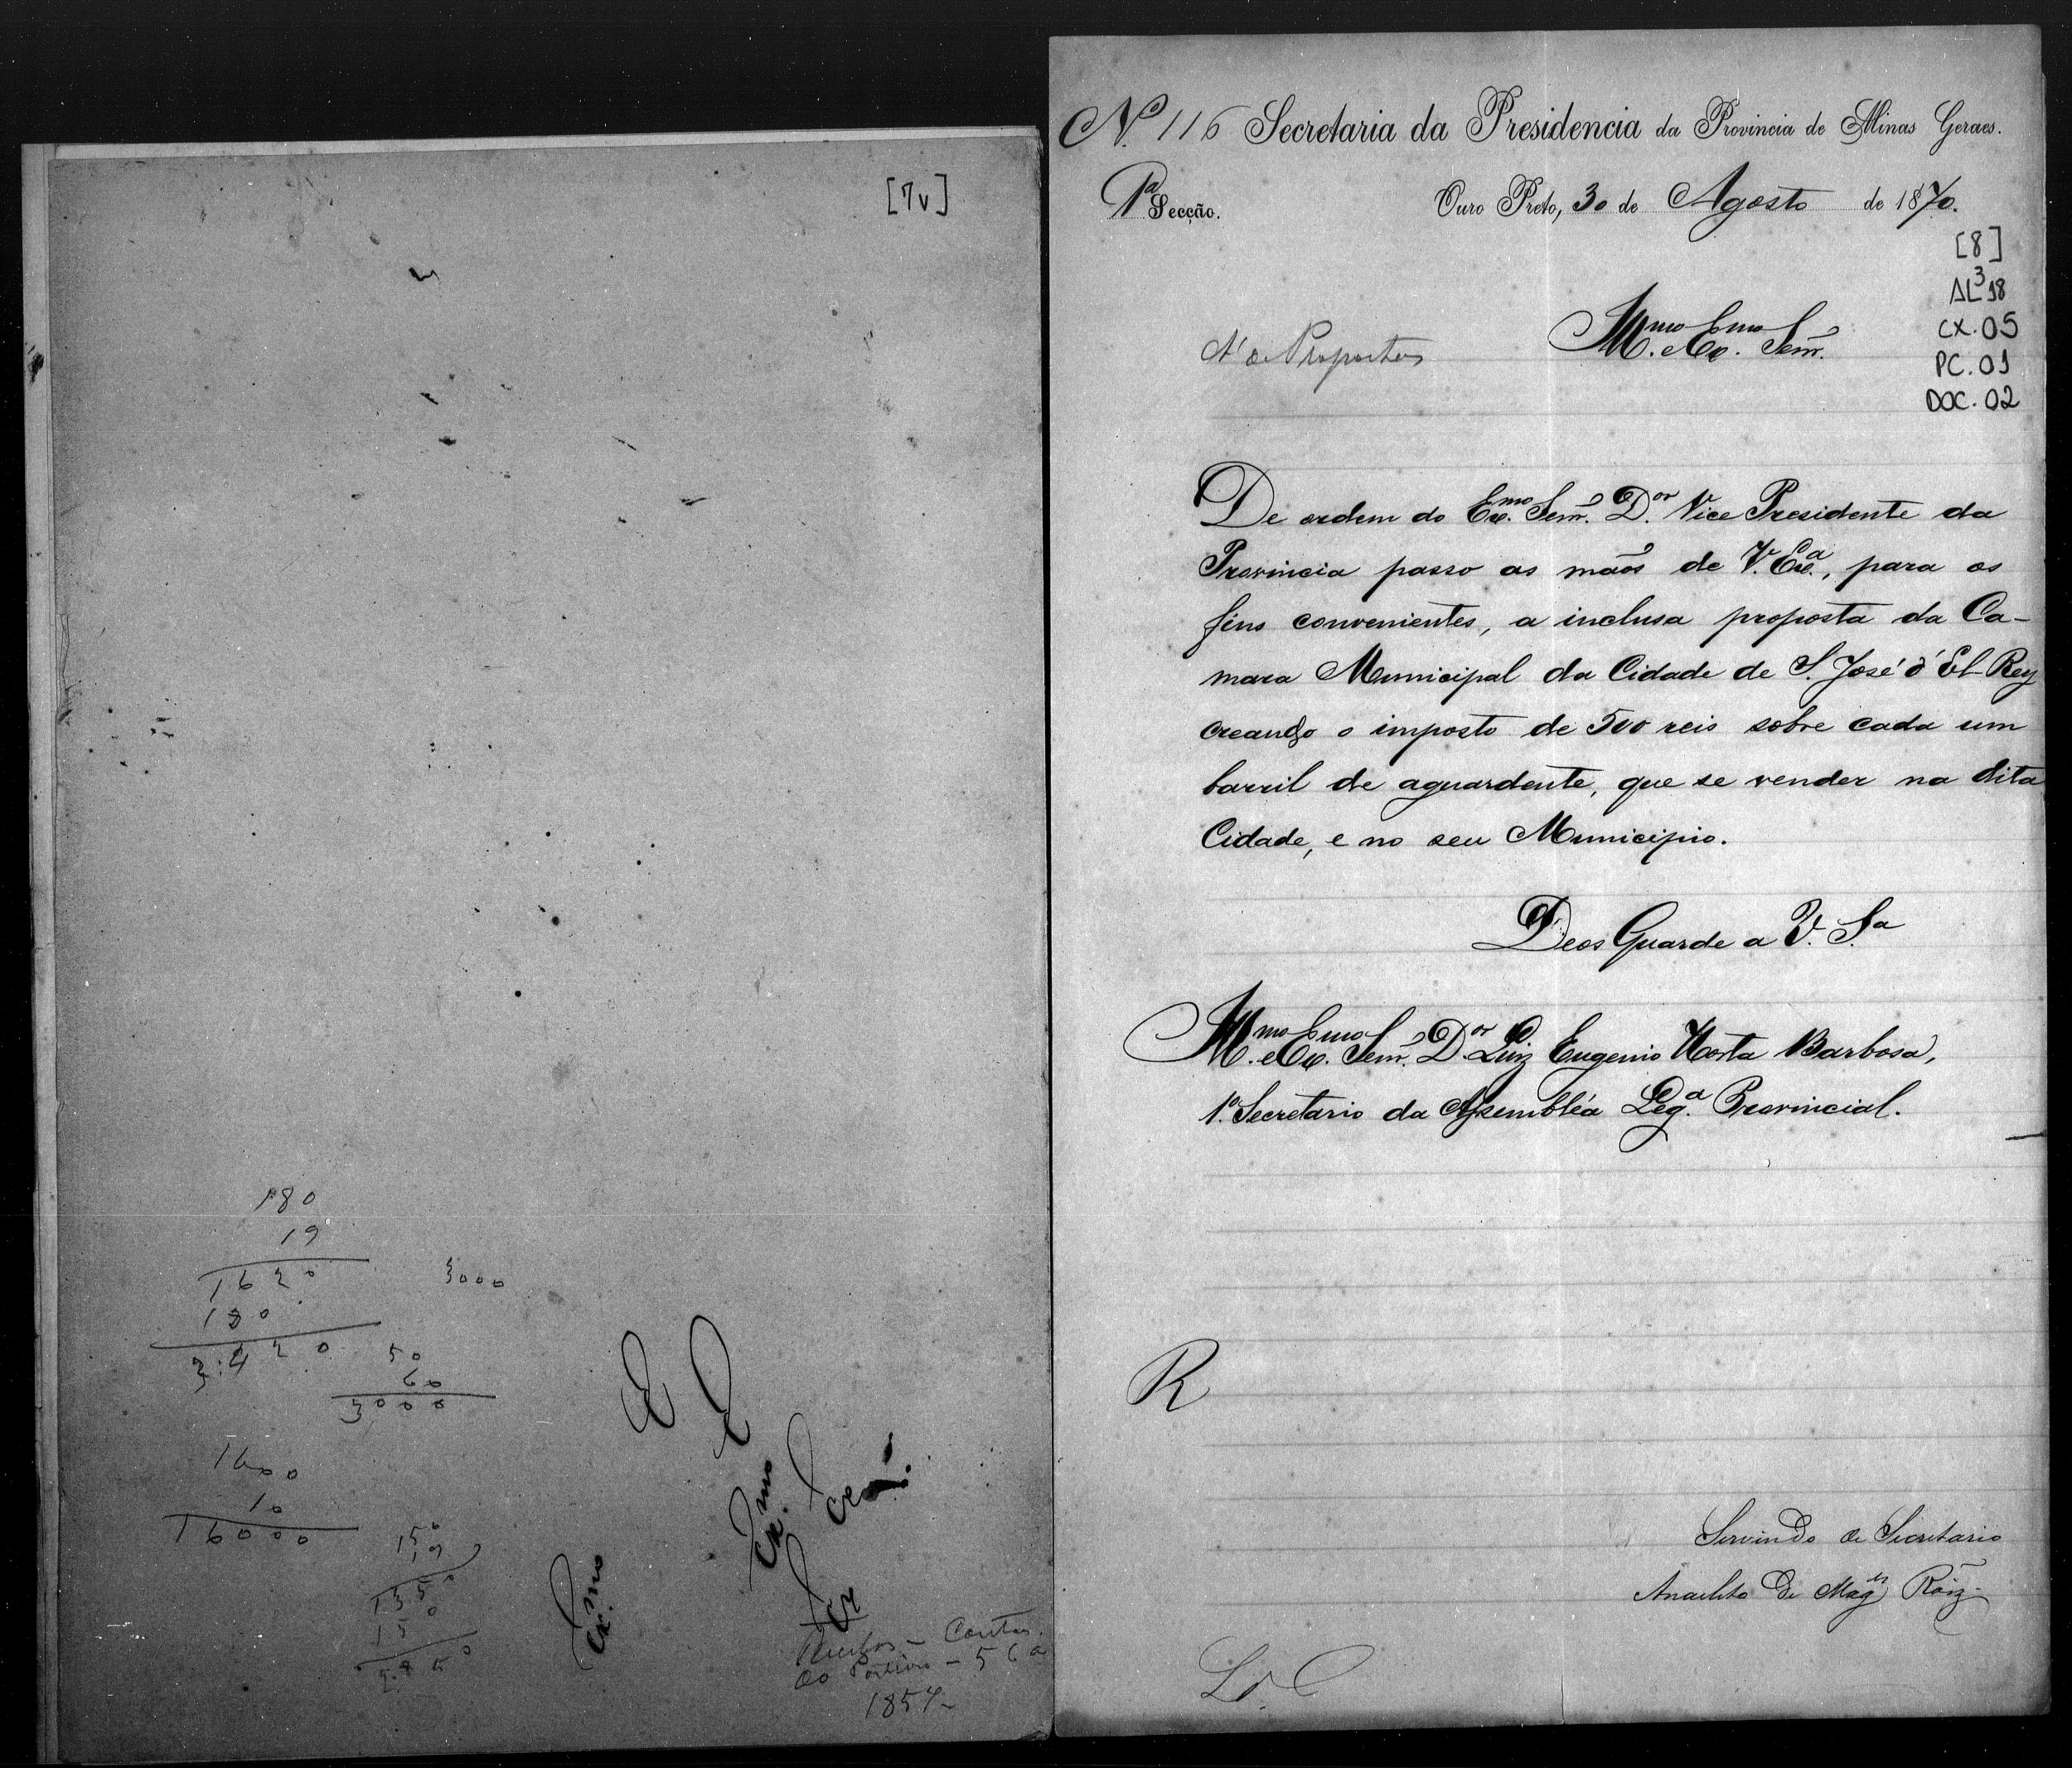 [7v]
180
19
1620
180
3:420
3000
50
60
3000
1600
10
16000
150
19
1350
150
E
Ex.mo
Ex.mo
Recibos - Contas
do Porteiro - 560
1857-
N. 116 Secretaria da Presidencia da Provincia de Minas Geraes.
1ª Secção.
Ouro Preto, 30 de Agosto de 1870.
[8]
AL³18
CX.05
PC.01
DOC.02
Propostas
Ill.mo e Ex.mo Senr.
De ordem do Ex.mo Senr. D.or Vice Presidente da
Provincia passo as mãos de V. Exª., para os
fins convenientes, a inclusa proposta da Ca-
mara Municipal da Cidade de S. José d'El-Rey
creando o imposto de 500 reis sobre cada um
barril de aguardente, que se vender na dita
Cidade, e no seu Municipio.
Deos Guarde a V. S.ª
Ill.mo e Ex.mo Senr. D.or Luiz Eugenio Horta Barbosa,
1º. Secretario da Assembléa Leg.ª Provincial.
R
Servindo de Secretario
Anacleto de Mag.es Roiz